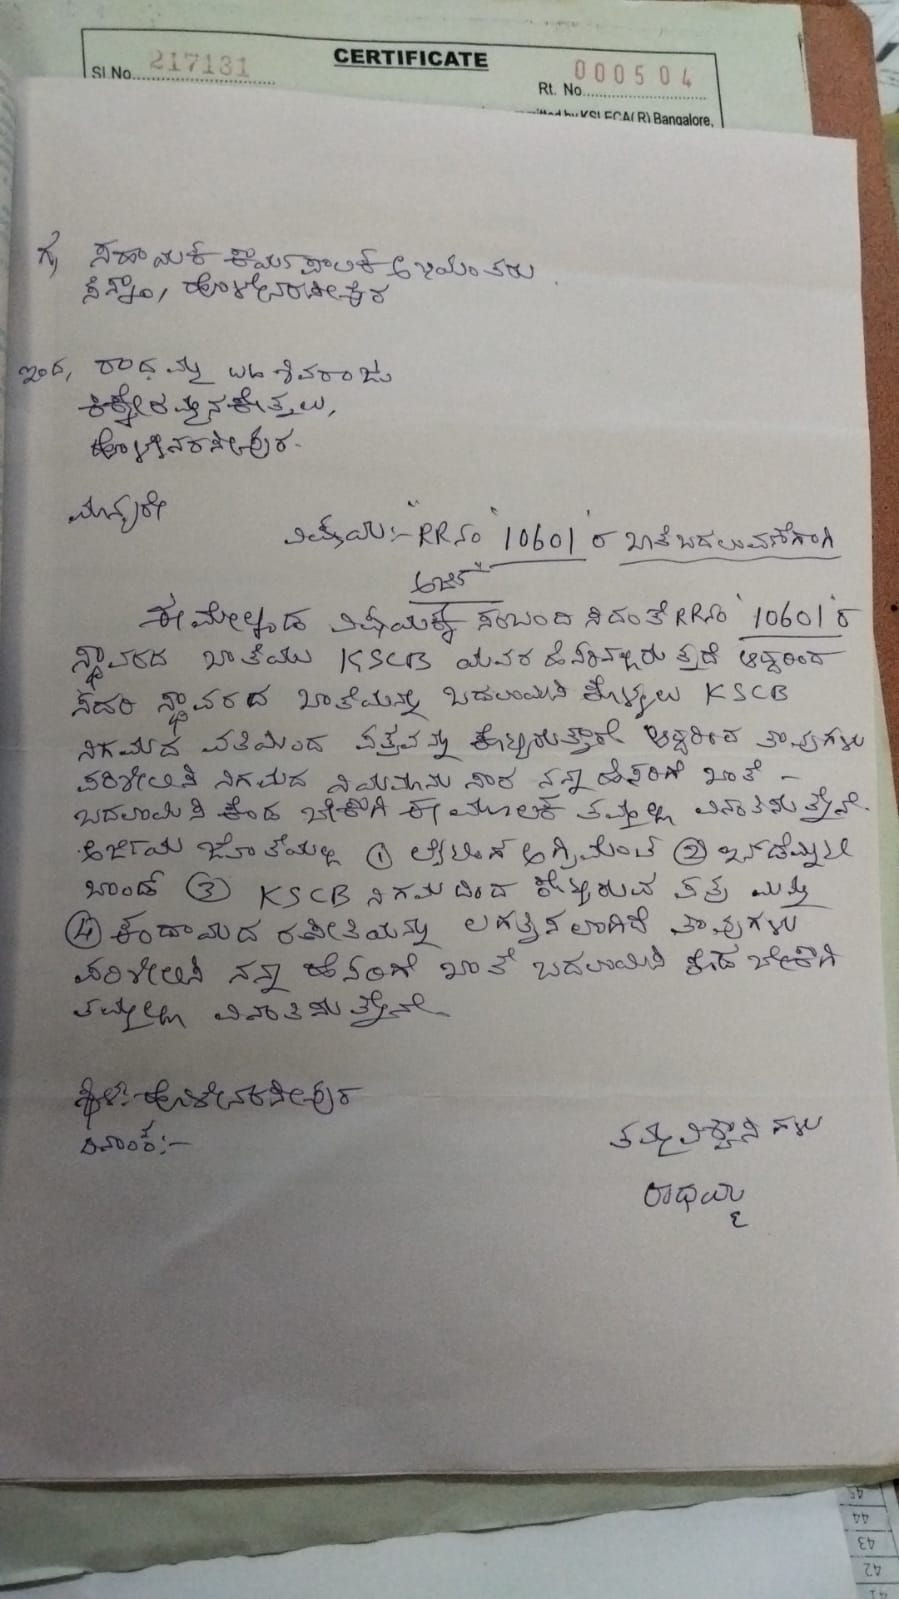 CERTIFICATE
Sl.No. 217131
Rt. No. 000504
KSLECA(R) Bangalore,
ಗೆ, ಸಹಾಯಕ ಕಾರ್ಯಪಾಲಕ ಅಭಿಯಂತರರು
ಹೊಳೇನರಸೀಪುರ
ಇಂದ, ರಾಧಮ್ಮ ಶಿವರಾಜು
ಹೊಳೇನರಸೀಪುರ.
ಮಾನ್ಯರೇ
ವಿಷಯ:- "RR ನಂ '10601' ರ ಖಾತೆ ಬದಲಾವಣೆಗಾಗಿ
ಅರ್ಜಿ"
ಈ ಮೇಲ್ಕಂಡ ವಿಷಯಕ್ಕೆ ಸಂಬಂಧಿಸಿದಂತೆ RR ನಂ '10601' ರ
ಸ್ಥಾವರದ ಖಾತೆಯು KSCB ಯವರ ಹೆಸರಿನಲ್ಲಿರುತ್ತದೆ ಆದ್ದರಿಂದ
ಸದರಿ ಸ್ಥಾವರದ ಖಾತೆಯನ್ನು ಬದಲಾಯಿಸಿ ಕೊಳ್ಳಲು KSCB
ನಿಗಮದ ವತಿಯಿಂದ ಪತ್ರವನ್ನು ಕೊಟ್ಟಿರುತ್ತಾರೆ ಆದ್ದರಿಂದ ತಾವುಗಳು
ಪರಿಶೀಲಿಸಿ ನಿಗಮದ ನಿಯಮಾನುಸಾರ ನನ್ನ ಹೆಸರಿಗೆ ಖಾತೆ -
ಬದಲಾಯಿಸಿ ಕೊಡ ಬೇಕಾಗಿ ಈ ಮೂಲಕ ತಮ್ಮಲ್ಲಿ ವಿನಂತಿಸುತ್ತೇನೆ.
ಅರ್ಜಿಯ ಜೊತೆಯಲ್ಲಿ ① ಅಗ್ರಿಮೆಂಟ್ ② ಇನ್‌ಡೆಮ್ನಿಟಿ
ಬಾಂಡ್ ③ KSCB ನಿಗಮದಿಂದ ಕೊಟ್ಟಿರುವ ಪತ್ರ ಮತ್ತು
④ ಕಂದಾಯದ ರಶೀತಿಯನ್ನು ಲಗತ್ತಿಸಲಾಗಿದೆ ತಾವುಗಳು
ಪರಿಶೀಲಿಸಿ ನನ್ನ ಹೆಸರಿಗೆ ಖಾತೆ ಬದಲಾಯಿಸಿ ಕೊಡ ಬೇಕಾಗಿ
ತಮ್ಮಲ್ಲಿ ವಿನಂತಿಸುತ್ತೇನೆ.
ಸ್ಥಳ:- ಹೊಳೇನರಸೀಪುರ
ದಿನಾಂಕ:-
ತಮ್ಮ ವಿಶ್ವಾಸಿಗಳು
ರಾಧಮ್ಮ
45
44
43
42
41